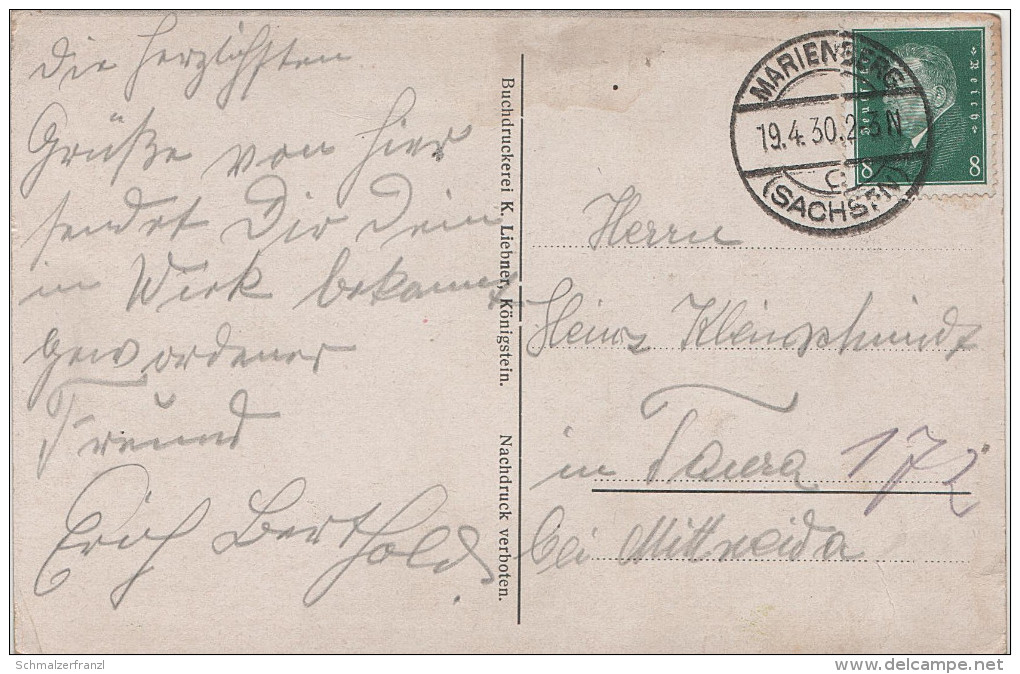 Die herzlichsten
Grüße von hier
sendet Dir Dein
in Wiek bekannt
gewordener
Freund
Erich Berthold
Buchdruckerei K. Liebner, Königstein. Nachdruck verboten.
MARIENBERG
19.4.30.2-3N
c
(SACHSEN)
Deutsches Reich
8 8
Herrn
Heinz Kleinschmidt
in Taura 172
bei Mittweida
Schmalzerfranzl
www.delcampe.net